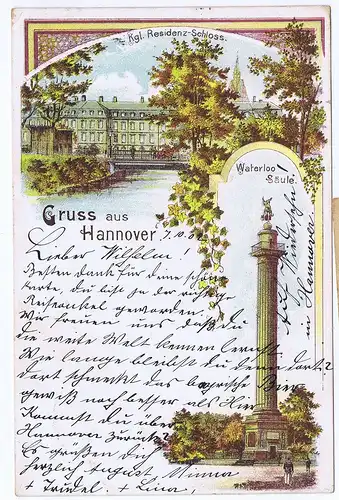 Kgl. Residenz-Schloss.
Waterloo
Säule.
Gruss aus
Hannover
Lieber Wilhelm!
Besten Dank für deine schöne
Karte, du bist ja der richtige
Reiseonkel geworden.
Wir freuen uns daß du
die weite Welt kennen lernst
Wie lange bleibst du denn dort?
dort schmeckt das bayrische Bier
gewiß noch besser als Hier
Kommst du über
Hannover zurück?
Es grüßen dich
herzlich August Minna
+ Trudel. + Lina,
auf Wiedersehn!
in Hannover